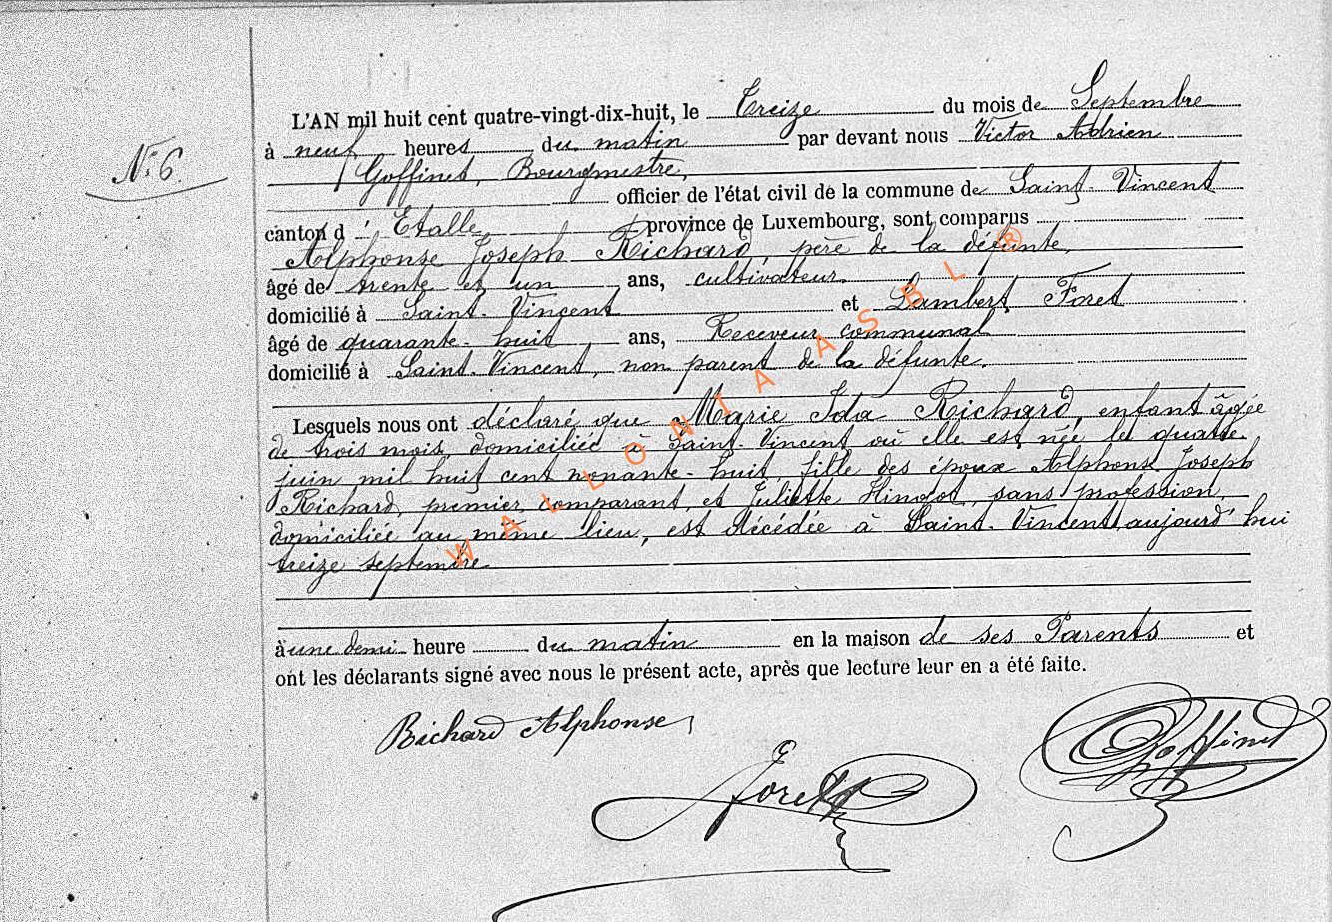 L'AN mil huit cent quatre-vingt-dix-huit, le Treize du mois de Septembre
N° 6.
à neuf heures du matin par devant nous Victor Adrien
Goffinet, Bourgmestre,
officier de l'état civil de la commune de Saint-Vincent
canton d' Etalle province de Luxembourg, sont comparus
Alphonse Joseph Richard, père de la défunte,
âgé de trente et un ans, cultivateur
domicilié à Saint-Vincent et Lambert Foret
âgé de quarante-huit ans, Receveur communal
domicilié à Saint-Vincent, non parent de la défunte.
Lesquels nous ont déclaré que Marie Ida Richard, enfant âgée
de trois mois, domiciliée à Saint-Vincent où elle est née le quatre
juin mil huit cent nonante-huit, fille des époux Alphonse Joseph
Richard, premier comparant, et Juliette Hindot, sans profession,
domiciliée au même lieu, est décédée à Saint-Vincent aujourd'hui
treize septembre
à une demi heure du matin en la maison de ses Parents et
ont les déclarants signé avec nous le présent acte, après que lecture leur en a été faite.
Richard Alphonse
Foret
Goffinet
WALLONIA ASBL ®